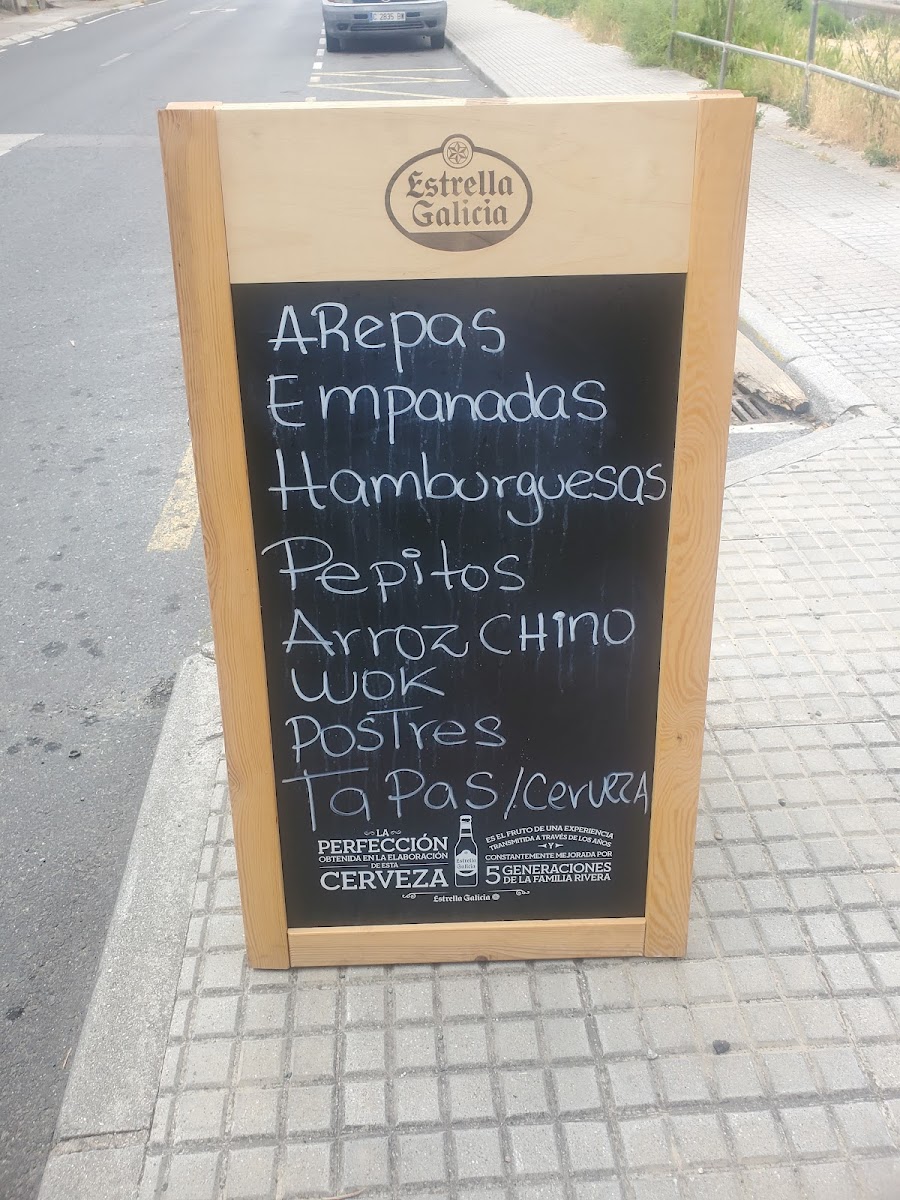 C 2835 BW
Estrella
Galicia
ARepas
Empanadas
Hamburguesas
Pepitos
Arroz CHino
WOK
PosTres
TaPas/Cerveza
LA
PERFECCIÓN
OBTENIDA EN LA ELABORACIÓN
DE ESTA
CERVEZA
Estrella
Galicia
ES EL FRUTO DE UNA EXPERIENCIA
TRANSMITIDA A TRAVÉS DE LOS AÑOS
Y
CONSTANTEMENTE MEJORADA POR
5 GENERACIONES
DE LA FAMILIA RIVERA
Estrella Galicia